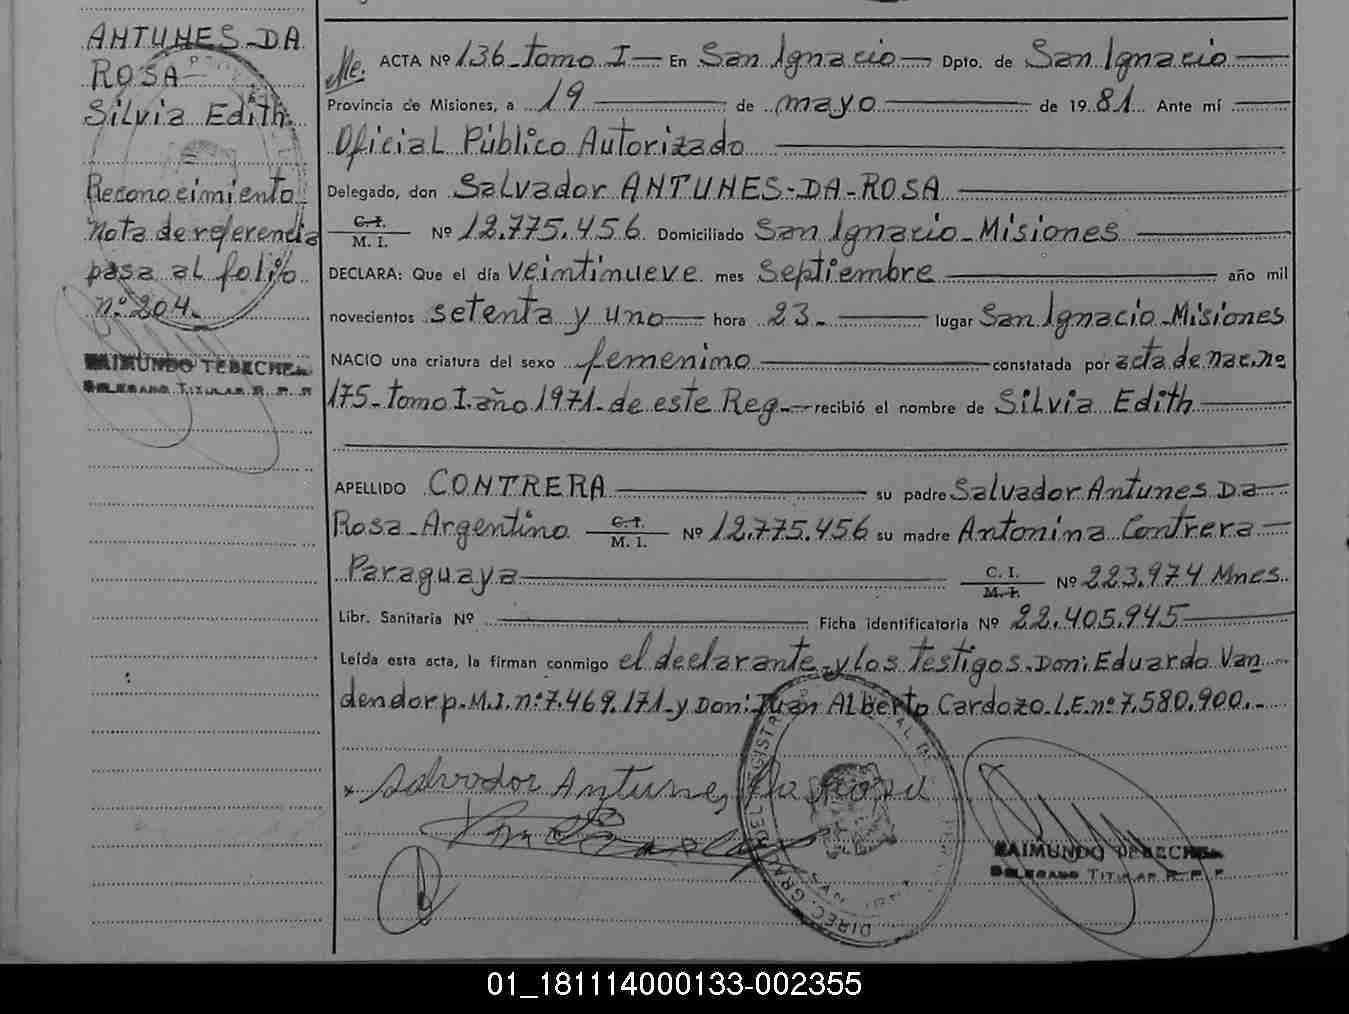 ANTUNES-DA
ROSA
Silvia Edith.
Reconocimiento
Nota de referencia
pasa al folio
nº 204.
RAIMUNDO TEBECHE
DELEGADO TITULAR R. P. P
ACTA Nº 136-tomo I- En San Ignacio- Dpto. de San Ignacio
Provincia de Misiones, a 19 de mayo de 1981. Ante mí
Oficial Público Autorizado
Delegado, don Salvador ANTUNES-DA-ROSA
C. I.
M. I. Nº 12.775.456 Domiciliado San Ignacio-Misiones
DECLARA: Que el día veintinueve mes Septiembre año mil
novecientos setenta y uno hora 23.- lugar San Ignacio-Misiones
NACIO una criatura del sexo femenino constatada por acta de nac. nº
175-tomo I. año 1971-de este Reg.- recibió el nombre de Silvia Edith
APELLIDO CONTRERA su padre Salvador Antunes Da
Rosa-Argentino C. I. M. I. Nº 12.775.456 su madre Antonina Contrera
Paraguaya C. I. M. I. Nº 223.974 Mnes.
Libr. Sanitaria Nº Ficha identificatoria Nº 22.405.945
Leída esta acta, la firman conmigo el declarante y los testigos. Don: Eduardo Van
dendorp. M.I. nº 7.469.171-y Don: Juan Alberto Cardozo. L.E. nº 7.580.900.-
Salvador Antunes Da Rosa
RAIMUNDO TEBECHE
DELEGADO TITULAR R. P. P
01_181114000133-002355